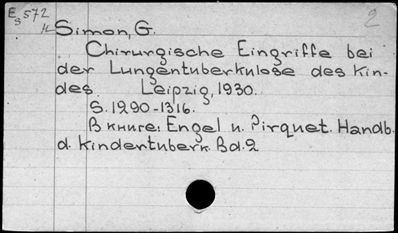 E 572
s
Simon, G.
2
Chirurgische Eingriffe bei
der Lungentuberkulose des Kin-
des. Leipzig, 1930.
S. 1290-1316.
В книге: Engel u. Pirquet. Handb.
d. Kindertuberk. Bd. 2